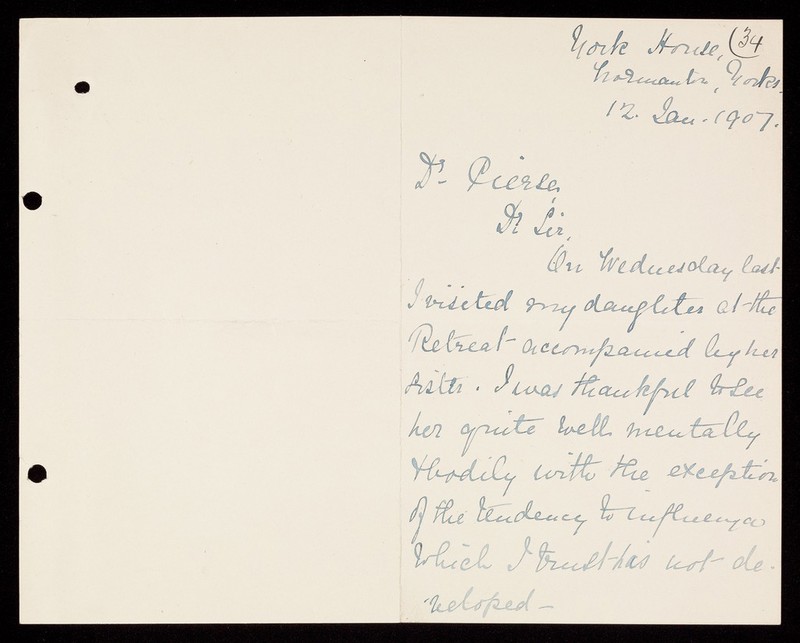 (34
York House,
Normanton, Yorks.
12. Jan. 1907.
Dr. Pierse,
Dr Sir,
On Wednesday last
I visited my daughter at the
Retreat accompanied by her
sister. I was thankful to see
her quite well mentally
& bodily with the exception
of the tendency to influenza
which I trust has not de-
veloped –